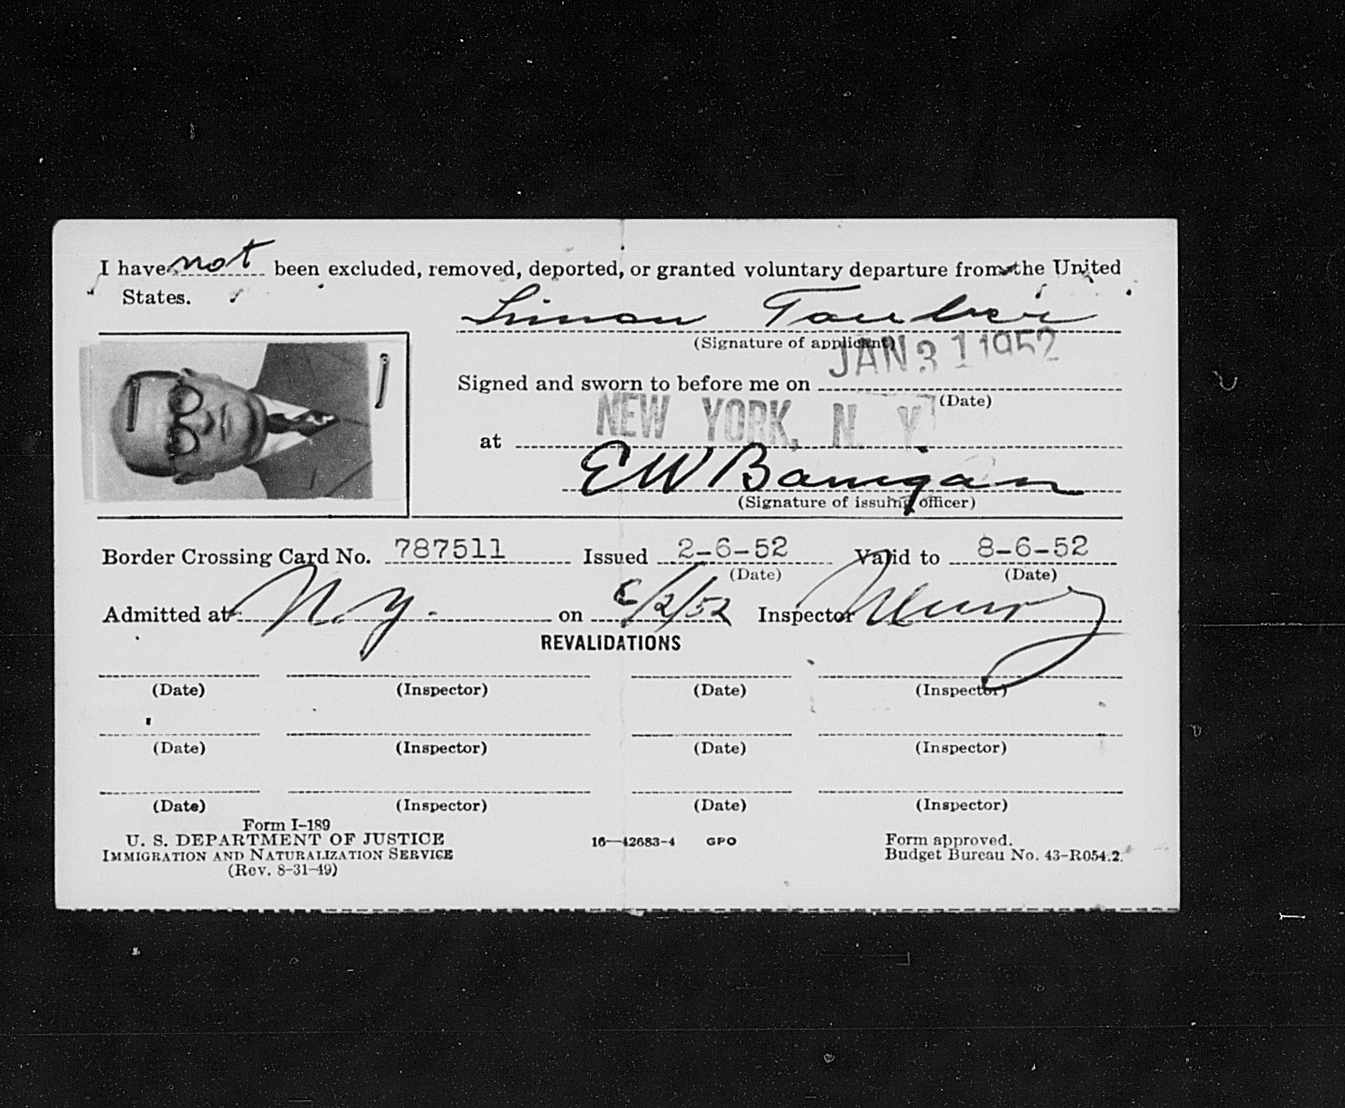 I have not been excluded, removed, deported, or granted voluntary departure from the United
States.
Simon Tauber
(Signature of applicant)
JAN 31 1952
Signed and sworn to before me on
(Date)
NEW YORK, N. Y.
at
EW Banigan
(Signature of issuing officer)
Border Crossing Card No. 787511 Issued 2-6-52 Valid to 8-6-52
(Date) (Date)
Admitted at N.Y. on 6/2/52 Inspector
REVALIDATIONS
(Date) (Inspector) (Date) (Inspector)
(Date) (Inspector) (Date) (Inspector)
(Date) (Inspector) (Date) (Inspector)
Form I-189
U. S. DEPARTMENT OF JUSTICE
IMMIGRATION AND NATURALIZATION SERVICE
(Rev. 8-31-49)
16—42683-4 GPO
Form approved.
Budget Bureau No. 43-R054.2.